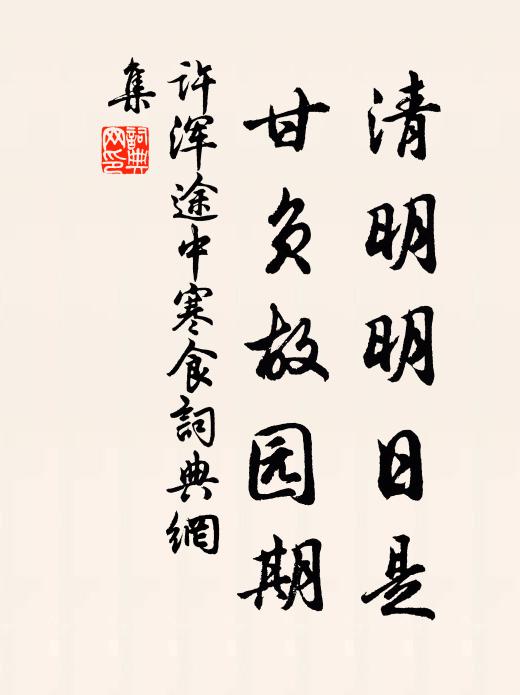 清明明日是
甘负故园期
许浑途中寒食詞典網
集
詞典網印